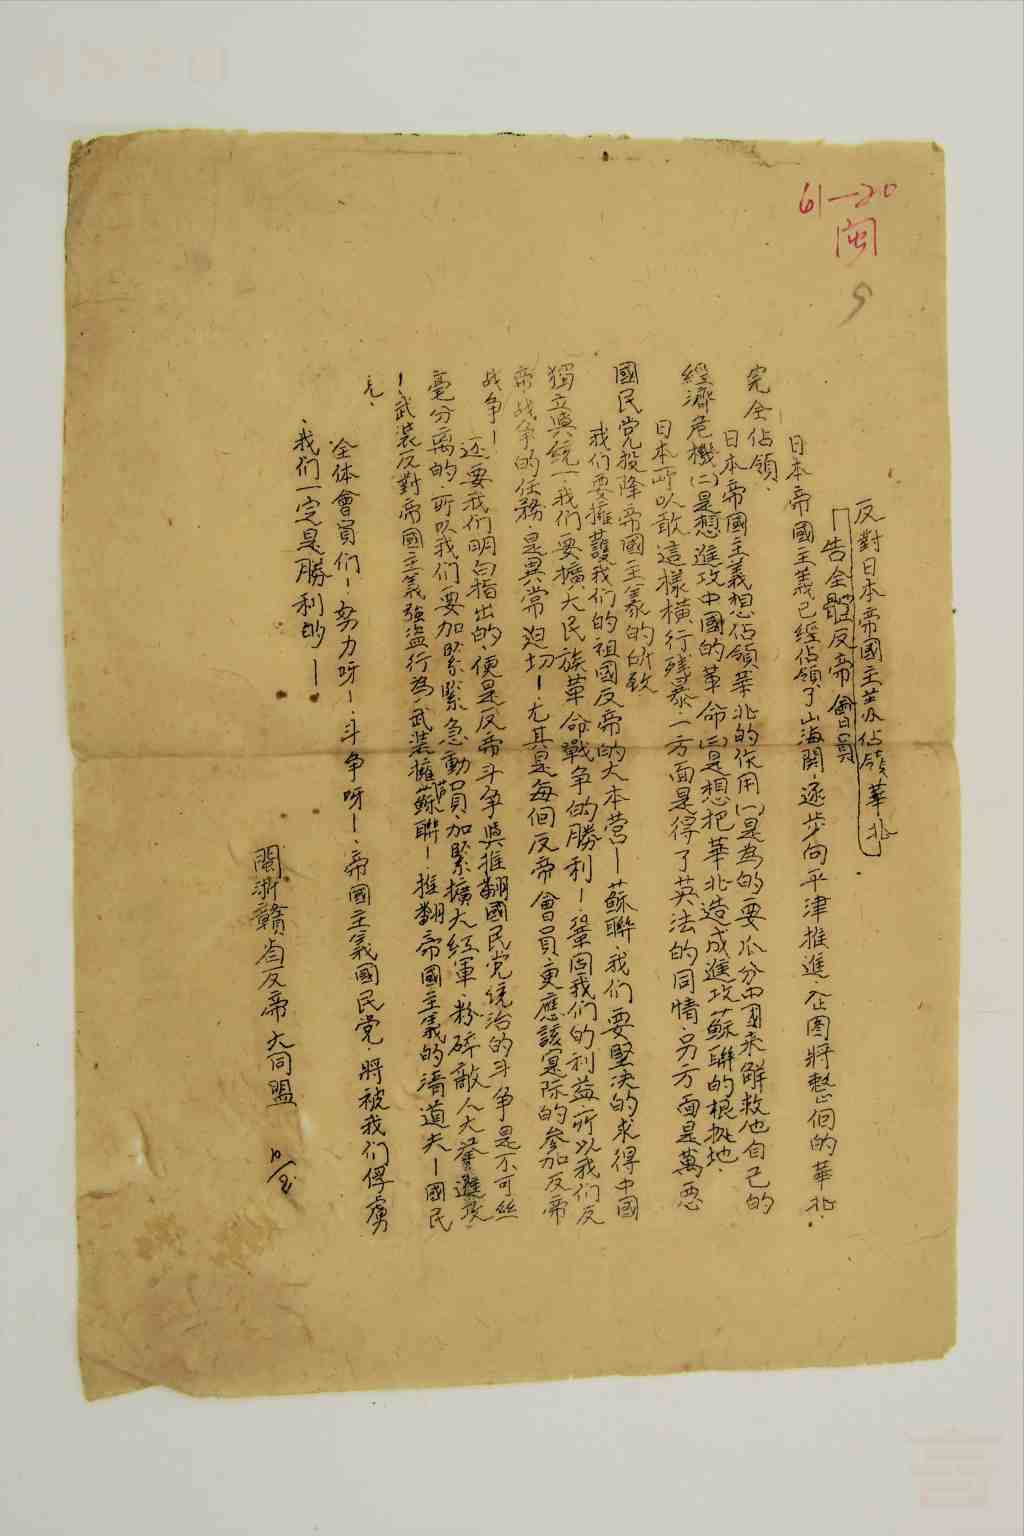 61—20
闽
9
反對日本帝國主义佔領華北
告全體反帝會員
日本帝國主義已經佔領了山海関·逐步向平津推進·企图將整个的華北·
完全佔領·
日本帝國主義想佔領華北的作用(一)是為的要瓜分中國来解救他自己的
經濟危機(二)是想進攻中國的革命(三)是想把華北造成進攻蘇聯的根據地·
日本所以敢這樣橫行残暴·一方面是得了英法的同情·另方面是萬惡
國民党投降帝國主義的所致
我们要擁護我们的祖國反帝的大本营—蘇聯·我们要堅决的求得中國
獨立與統一·我们要擴大民族革命戰争的勝利—鞏固我们的利益所以我们反
帝战争的任務·是異常迫切—尤其是每個反帝會員更應該實际的参加反帝
战争—
还要我们明白指出的·便是反帝斗争與推翻國民党统治的斗争是不可丝
毫分离的·所以我们要加緊緊急動員·加緊擴大红軍·粉碎敵人大舉進攻
—武裝反對帝國主義強盜行為—武装擁護蘇聯—推翻帝國主義的清道夫—國民
党·
全体會員们—努力呀—斗争呀—帝國主義國民党·將被我们俘虜
·我们一定是勝利的—
閩浙贛省反帝大同盟